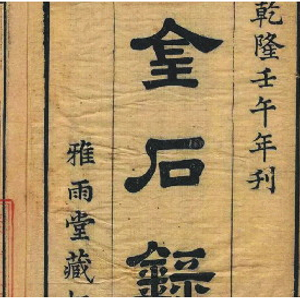 乾隆壬午年刊
金石錄
雅雨堂藏